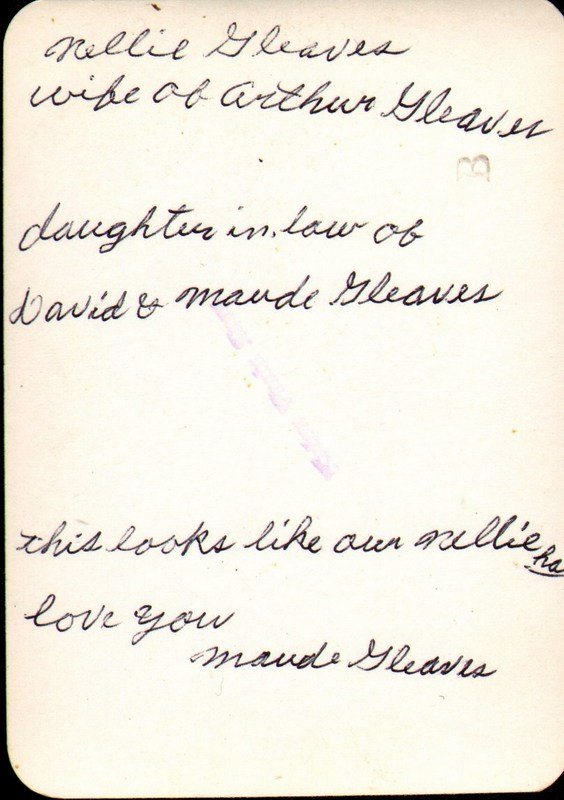 Nellie Gleaves
wife of Arthur Gleaves
B
daughter in. law of
David & Maude Gleaves
this looks like our Nellie
ha
love you
Maude Gleaves